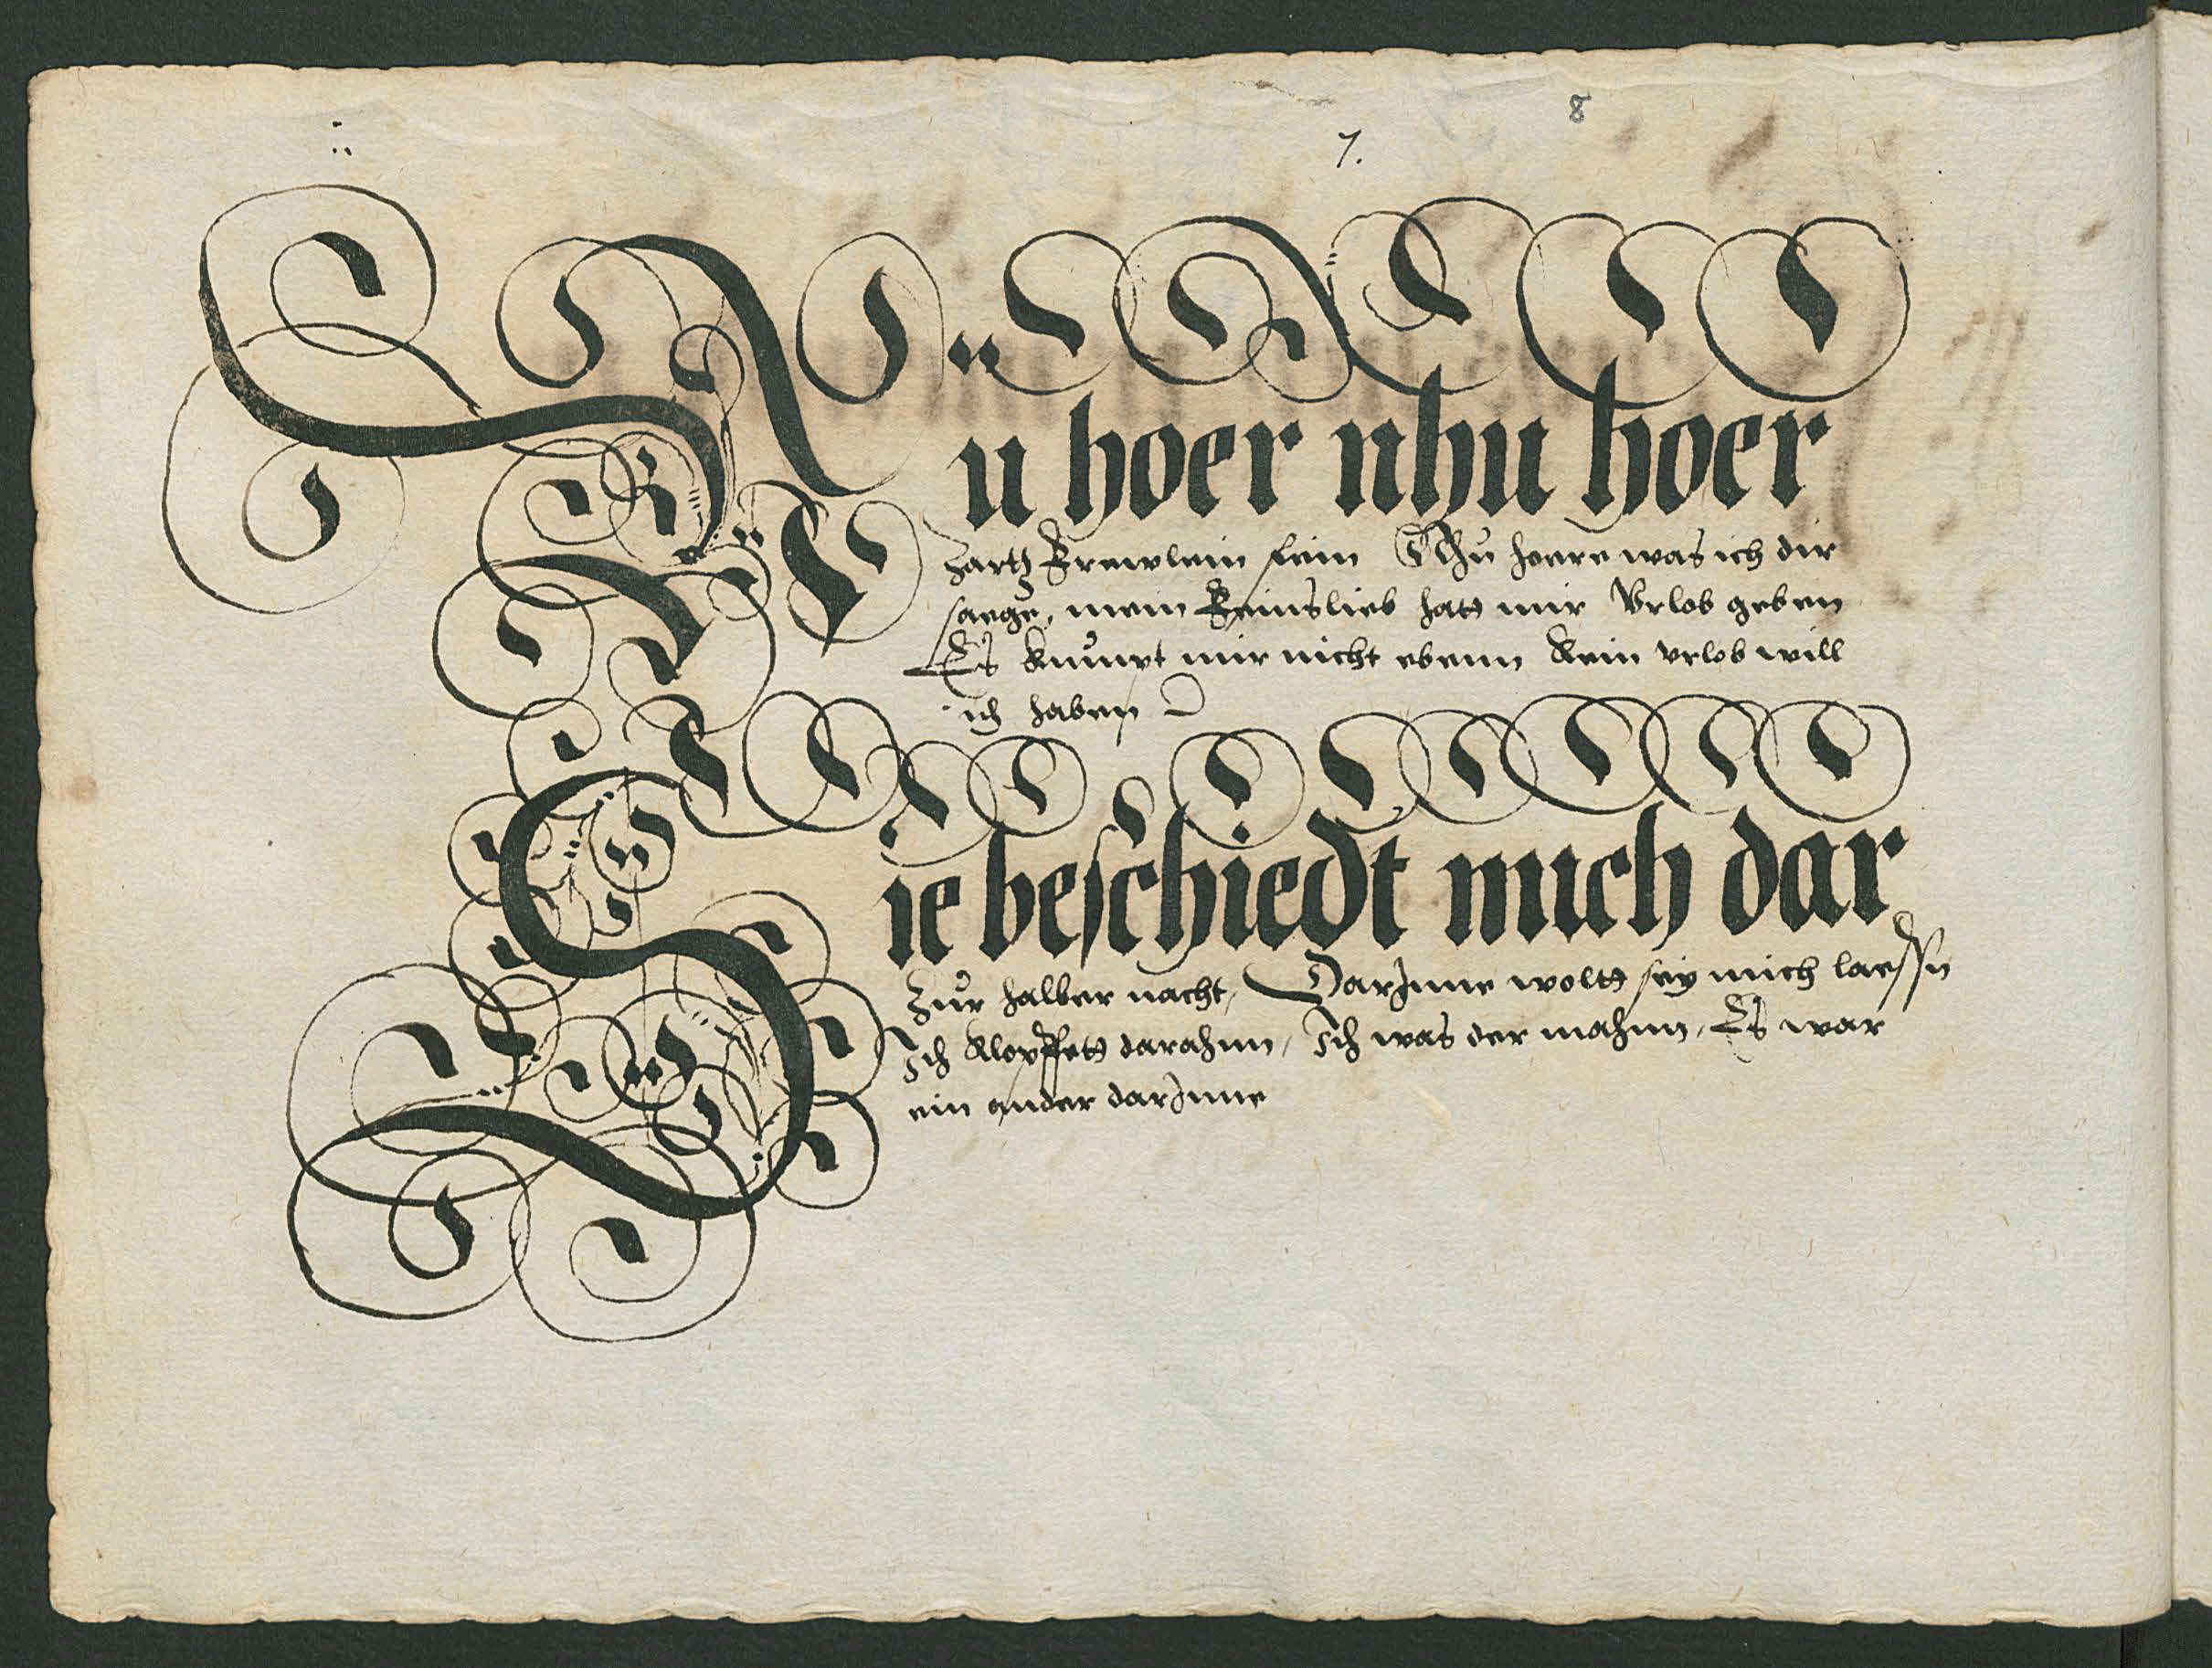 8
7.
Nu hoer nhu hoer
Zartz Frewlein fein Thu hoere was ich dir
saege, mein Feinslieb hatt mir Vrlob geben
Es kumpt mir nicht ebenn kein vrlob will
ich haben
Sie beschiedt mich dar
Zur halber nacht, DarInne woltt sey mich laessn
Ich klopffett darahnn, Ich was der mahnn, Es war
ein ander darInne